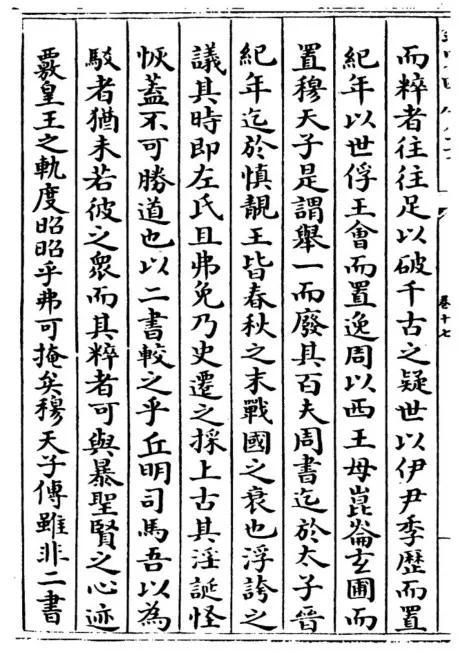 卷十七
而粹者往往足以破千古之疑世以伊尹季歷而置
紀年以世俘王會而置逸周以西王母崑崙玄圃而
置穆天子是謂舉一而廢其百夫周書迄於太子晉
紀年迄於慎靚王皆春秋之末戰國之衰也浮誇之
議其時即左氏且弗免乃史遷之採上古其淫誕怪
恢蓋不可勝道也以二書較之乎丘明司馬吾以為
駁者猶未若彼之衆而其粹者可與暴聖賢之心迹
覈皇王之軌度昭昭乎弗可掩矣穆天子傳雖非二書